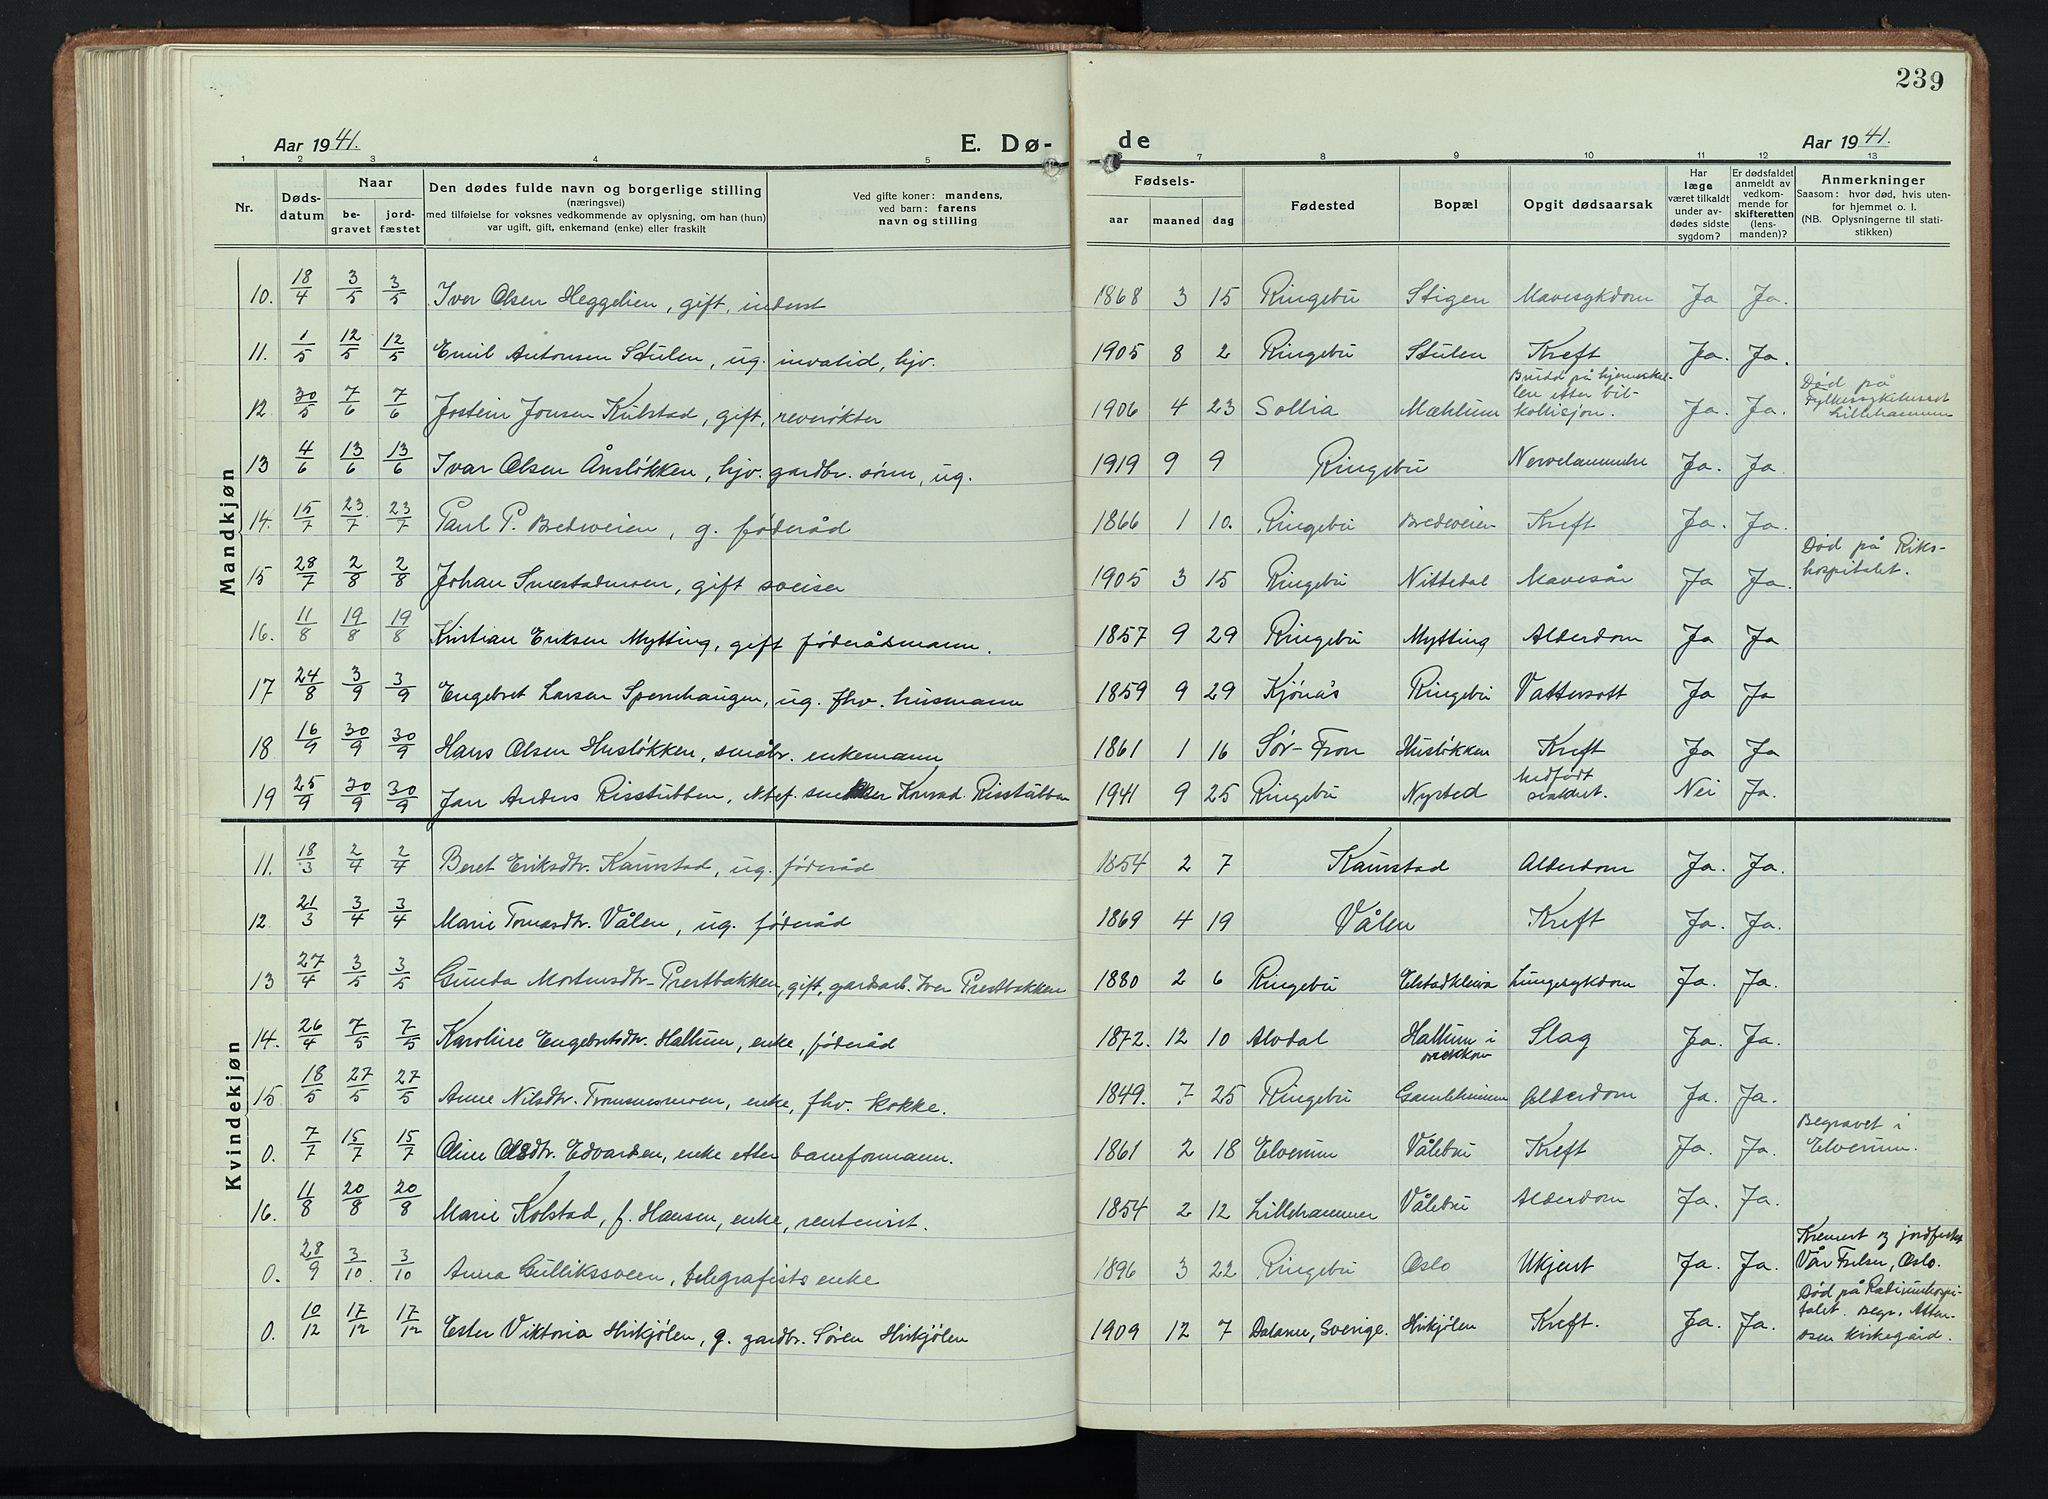 239
Aar 1941.
E. Dø-
de
Aar 1941.
1 2 3 4 5 6 7 8 9 10 11 12 13
Nr.
Døds-
datum
Naar
be-
gravet
jord-
fæstet
Den dødes fulde navn og borgerlige stilling
(næringsvei)
med tilføielse for voksnes vedkommende av oplysning, om han (hun)
var ugift, gift, enkemand (enke) eller fraskilt
Ved gifte koner: mandens,
ved barn: farens
navn og stilling
Fødsels-
aar maaned dag
Fødested
Bopæl
Opgit dødsaarsak
Har
læge
været tilkaldt
under av-
dødes sidste
sygdom?
Er dødsfaldet
anmeldt av
vedkom-
mende for
skifteretten
(lens-
manden)?
Anmerkninger
Saasom: hvor død, hvis uten-
for hjemmet o. l.
(NB. Oplysningerne til stati-
stikken)
Mandkjøn
10. 18/4 3/5 3/5 Iver Olsen Heggelien, gift, inderst 1868 3 15 Ringebu Stigen Mavesykdom Ja Ja.
11. 1/5 12/5 12/5 Emil Antonsen Stulen, ug. invalid, hjv. 1905 8 2 Ringebu Stulen Kreft Ja. Ja.
12 30/5 7/6 7/6 Jostein Jonsen Kulstad, gift, revrøkter 1906 4 23 Sollia Mæhlum Brudd på hjerneskal-
len etter bil-
kollisjon. Ja. Ja. Død på
Fylkessykehuset
Lillehammer
13 4/6 13/6 13/6 Ivar Olsen Ånsløkken, hjv. gardbr. sønn, ug. 1919 9 9 Ringebu Nervelammelse Ja. Ja.
14. 15/7 23/7. 23/7 Paul P. Bredeveien, g. føderåd 1866 1 10. Ringebu Bredeveien Kreft Ja. Ja.
15 28/7 2/8 2/8 Johan Smestadmoen, gift sveiser 1905 3 15 Ringebu Nittedal Mavesår Ja Ja. Død på Riks-
hospitalet.
16. 11/8 19/8 19/8 Kristian Eriksen Mytting, gift føderådsmann. 1857 9 29 Ringebu Mytting Alderdom Ja Ja
17 24/8 3/9 3/9 Engebret Larsen Spernhaugen, ug. fhv. husmann 1859 9 29 Kjønås Ringebu Vattersott Ja Ja
18 16/9 30/9 30/9 Hans Olsen Husløkken, småbr. enkemann 1861 1 16 Sør-Fron Husløkken Kreft Ja Ja
19 25/9 30/9 30/9 Jan Anders Risstubben, Konrad Risstubben 1941 9 25 Ringebu Nysted Medfødt
Nei Ja.
Kvindekjøn
11. 18/3 2/4 2/4 Beret Eriksdtr. Kaurstad, ug. føderåd 1854 2 7 Kaurstad Alderdom Ja. Ja.
12 21/3 3/4 3/4 Marie Tomasdtr. Vålen, ug. føderåd 1869 4 19 Vålen Kreft Ja. Ja.
13 27/4 3/5 3/5 Gunda Mortensdtr. Prestbakken, gift, gardsarb. Iver Prestbakken 1880 2 6 Ringebu Elstadkleiva Lungesykdom Ja. Ja.
14. 26/4 7/5 7/5 Karoline Engebretsdtr. Hallum, enke, føderåd 1872. 12 10 Alvdal Hallum i
Slag Ja. Ja.
15 18/5 27/5 27/5 Anne Nilsdtr. Tromsnesmoen, enke, fhv. kokke. 1849. 7 25 Ringebu Gamleheimen Alderdom Ja. Ja.
0. 7/7 15/7 15/7 Oline Olsdtr. Edvardsen, enke etter baneformann. 1861 2 18 Elverum Vålebru Kreft Ja. Ja. Begravet i
Elverum.
16. 11/8 20/8 20/8 Marie Kolstad, f. Hansen, enke, rentenist. 1854 2 12 Lillehammer Vålebru Alderdom Ja. Ja.
0. 28/9 3/10. 3/10 Anna Gullikssveen, telegrafists enke 1896 3 22 Ringebu Oslo Ukjent Ja. Ja. Kremert og jordfestet
Vår Frelser, Oslo.
0. 10/12 17/12 17/12 Ester Viktoria Hirkjølen, g. gardbr. Søren Hirkjølen 1909 12 7 Dalarne, Sverige. Hirkjølen Kreft. Ja. Ja. Død på Radiumhospi-
talet. Begr. Atten-
osen kirkegård.